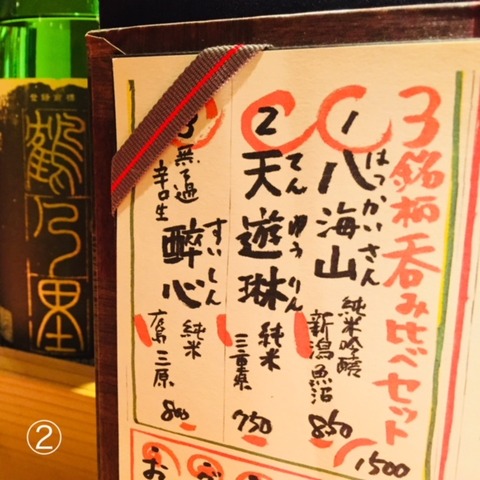 3銘柄呑み比べセット
1500
1 八海山
はっかいさん
純米吟醸
新潟魚沼
850
2 天遊琳
てんゆうりん
純米
三重県
750
3 無濾過
辛口生
酔心
すいしん
純米
広島三原
800
登録商標
鶴乃里
②